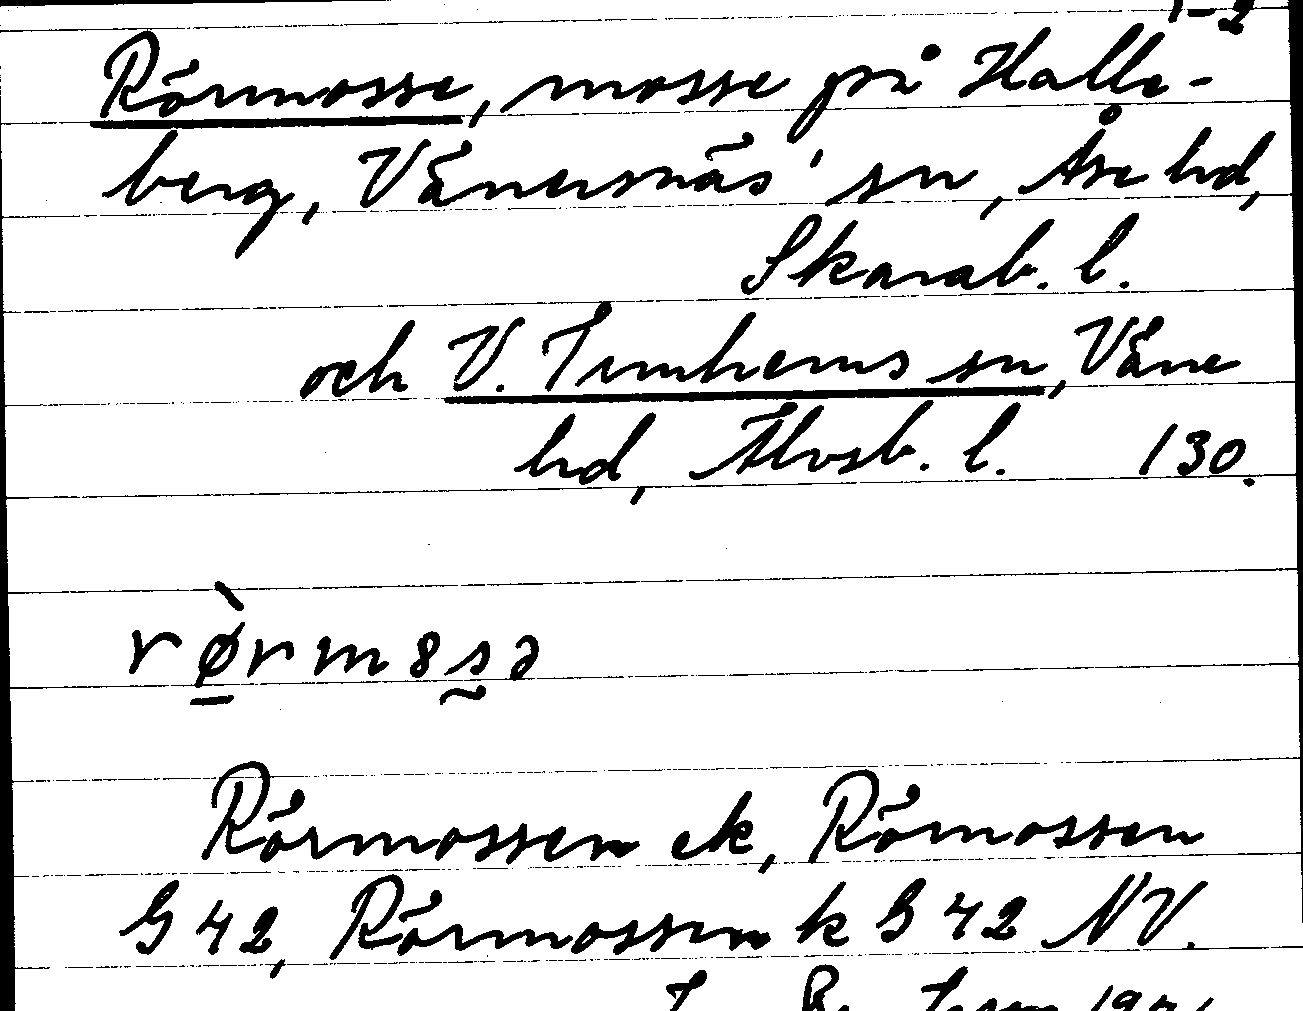 1-2
Rörmosse, mosse på Halle-
berg, Vänersnäs' sn, Åse hd,
Skarab. l.
och V. Tunhems sn, Väne
hd, Älvsb. l. 130.
rø̀rm8sə
Rörmossen ek, Römossen
G 42, Rörmossen k G 42 NV.